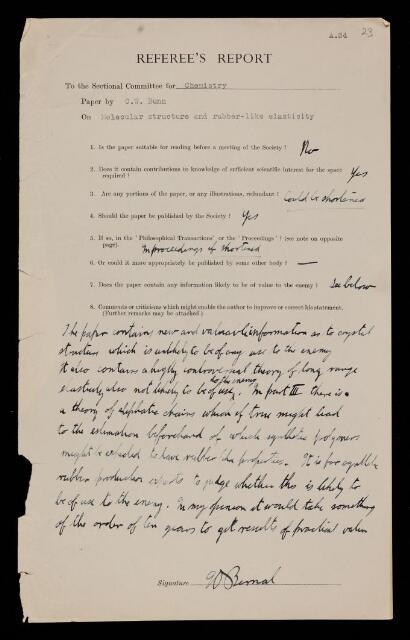 A.34 23
REFEREE'S REPORT
To the Sectional Committee for Chemistry
Paper by C.W. Bunn
On Molecular structure and rubber-like elasticity
1. Is the paper suitable for reading before a meeting of the Society? No
2. Does it contain contributions to knowledge of sufficient scientific interest for the space
required? Yes
3. Are any portions of the paper, or any illustrations, redundant? Could be shortened
4. Should the paper be published by the Society? Yes
5. If so, in the 'Philosophical Transactions' or the 'Proceedings'? (see note on opposite
page). In proceedings if shortened
6. Or could it more appropriately be published by some other body? —
7. Does the paper contain any information likely to be of value to the enemy? See below
8. Comments or criticisms which might enable the author to improve or correct his statement.
(Further remarks may be attached.)
The paper contains new and valuable information as to crystal
structure which is unlikely to be of any use to the enemy
It also contains a highly controversial theory of long range
elasticity also not likely to be of use to the enemy. In part III there is
a theory of aliphatic chains which if true might lead
to the estimation beforehand of which synthetic polymers
might be expected to have rubber like properties. It is for synthetic
rubber production experts to judge whether this is likely to
be of use to the enemy. In my opinion it would take something
of the order of ten years to get results of practical value
Signature JD Bernal